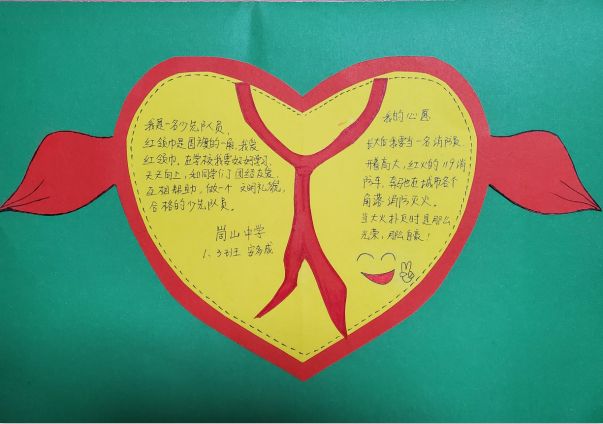 我是一名少先队员,
红领巾是国旗的一角,我爱
红领巾。在学校我要好好学习,
天天向上,和同学们团结友爱,
互相帮助,做一个文明礼貌,
合格的少先队员。
嵩山中学
1、3班
我的心愿
长大后我要当一名消防员
开着高大,红火的119消
防车,奔驰在城市各个
角落消防灭火。
当大火扑灭时是那么
光荣,那么自豪!